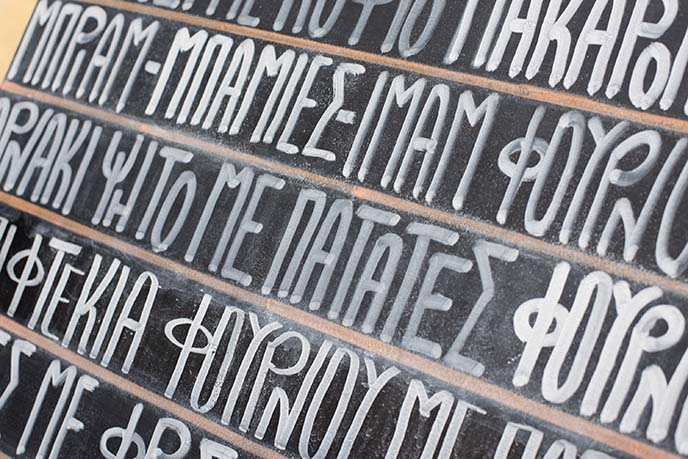 ΜΕ ΚΟΦΤΟ ΜΑΚΑΡΟΝ
ΜΠΡΙΑΜ-ΜΠΑΜΙΕΣ-ΙΜΑΜ ΦΟΥΡΝΟ
ΡΝΑΚΙ ΨΗΤΟ ΜΕ ΠΑΤΑΤΕΣ ΦΟΥΡΝ
ΙΦΤΕΚΙΑ ΦΟΥΡΝΟΥ ΜΕ ΠΑΤ
Σ ΜΕ ΦΡΕΣ